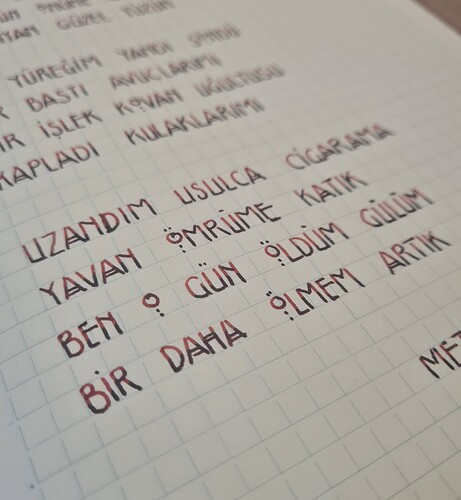 YANAN GÜZEL YÜZÜN
YÜREĞİM YANDI SÖNDÜ
BASTI AVUÇLARIMI
İŞLEK KOVAN UĞULTUSU
KAPLADI KULAKLARIMI
UZANDIM USULCA CIGARAMA
YAVAN ÖMRÜME KATIK
BEN O GÜN ÖLDÜM GÜLÜM
BİR DAHA ÖLMEM ARTIK